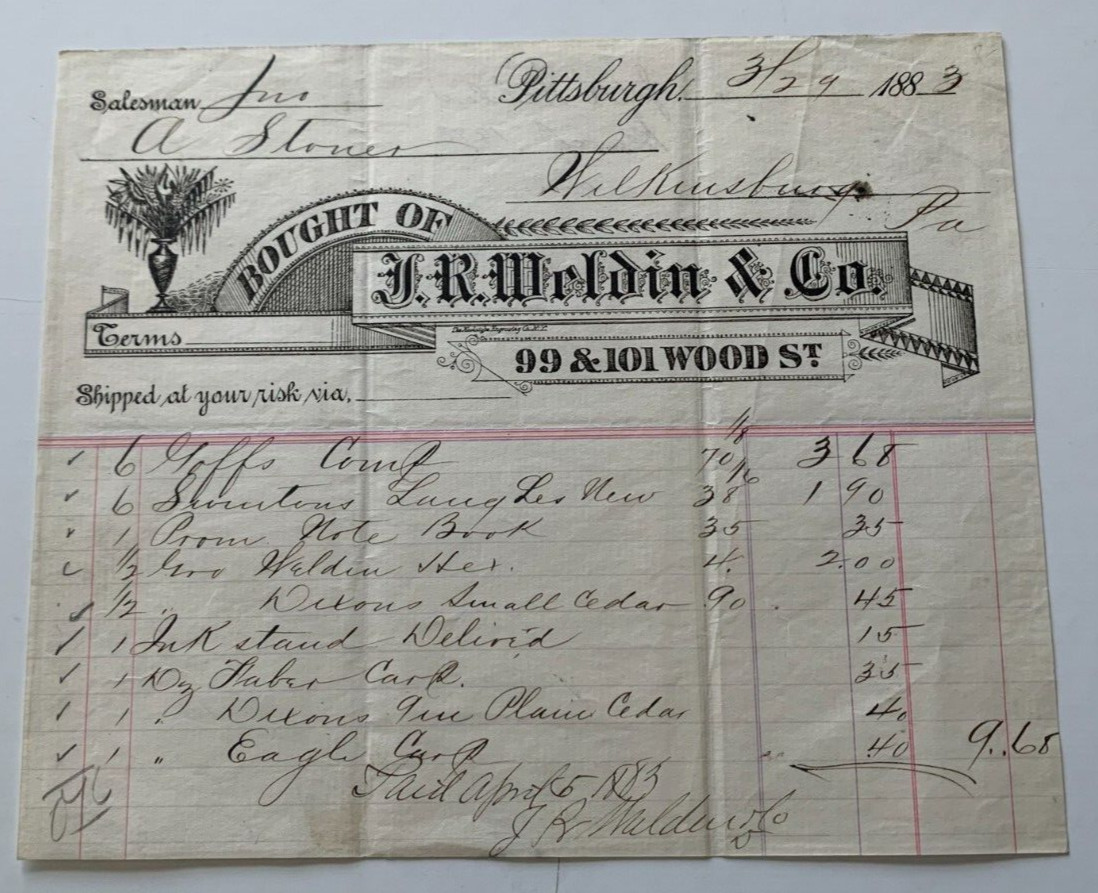 Salesman Jno Pittsburgh, 3/29 1883
A Stoner
Wilkinsburg
Pa
BOUGHT OF
J. R. Weldin & Co.
Terms
99 & 101 WOOD ST
Shipped at your risk via,
6 Goffs Comp 70 1/8 3 68
6 Swintons Lang Les New 38 1/6 1 90
1 Prom. Note Book 35 35
1/2 Gro Weldin Hex. 4. 2.00
1/2 " Dixons Small Cedar 90 45
1 Ink stand Deliv'd 15
1 Dz Faber Carp. 35
1 " Dixons Plain Cedar 40
1 " Eagle Carp 40 9.68
Paid April 5 1883
J R Weldin & Co